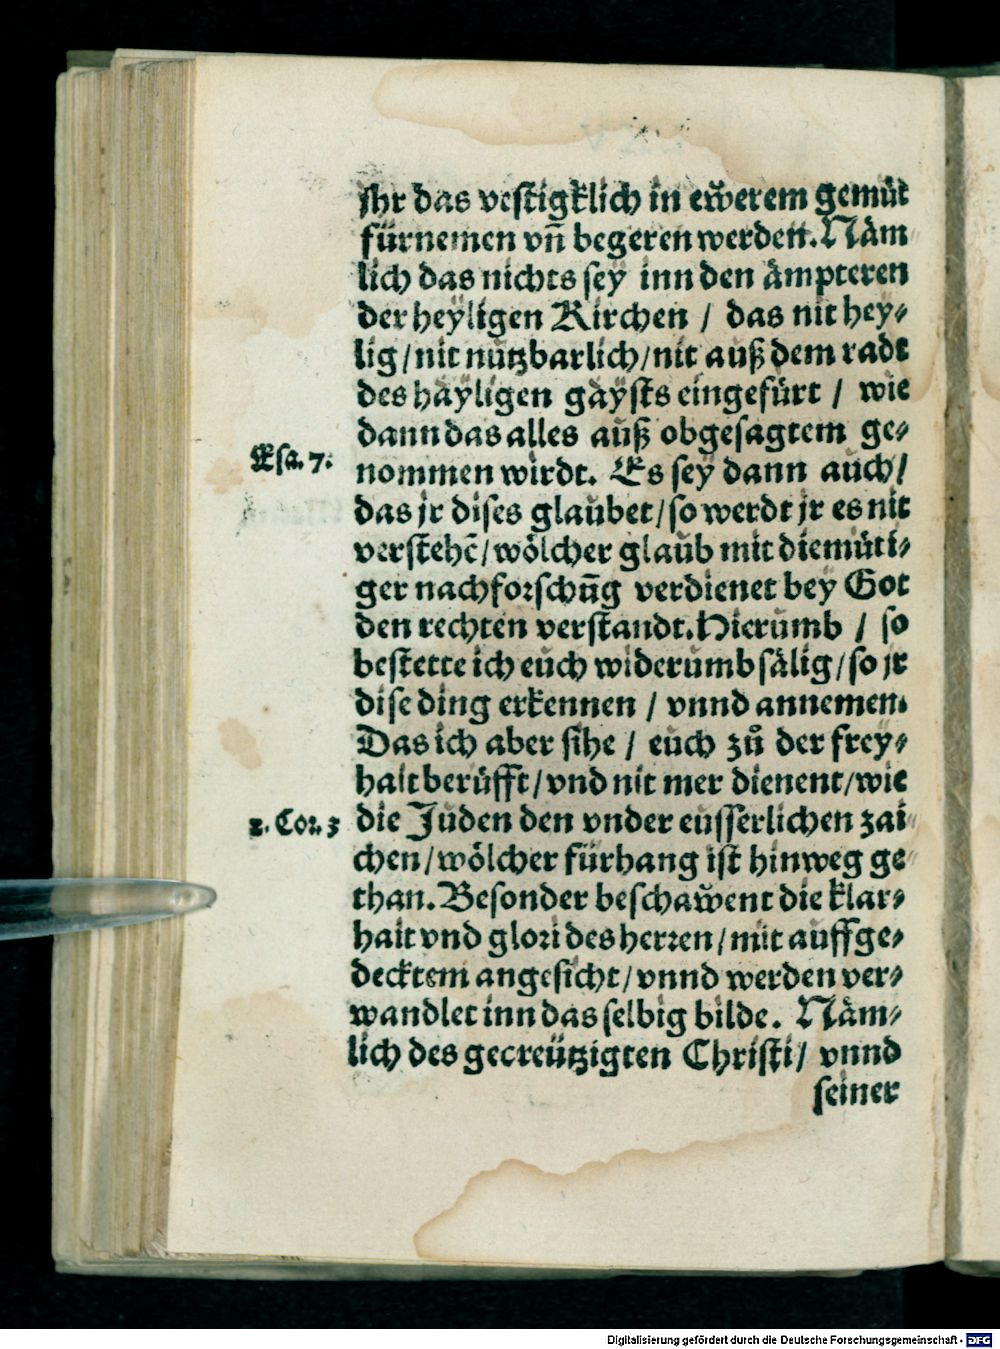 jhr das vestigklich in ewerem gemüt
fürnemen vñ begeren werden. Näm
lich das nichts sey inn den ämpteren
der heyligen Kirchen / das nit hey⸗
lig / nit nutzbarlich / nit auß dem radt
des häyligen gäysts eingefürt / wie
dann das alles auß obgesagtem ge⸗
Esa. 7.
nommen wirdt. Es sey dann auch /
das jr dises glaubet / so werdt jr es nit
verstehē / wölcher glaub mit diemüti⸗
ger nachforschūg verdienet bey Got
den rechten verstandt. Hierumb / so
bestette ich euch widerumb sälig / so jr
dise ding erkennen / vnnd annemen.
Das ich aber sihe / euch zů der frey⸗
hait berüfft / vnd nit mer dienent / wie
2. Cor. 3
die Juden den vnder eusserlichen zai
chen / wölcher fürhang ist hinweg ge⸗
than. Besonder beschawent die klar⸗
hait vnd glori des herren / mit auffge⸗
decktem angesicht / vnnd werden ver⸗
wandlet inn das selbig bilde. Näm⸗
lich des gecreützigten Christi / vnnd
seiner
Digitalisierung gefördert durch die Deutsche Forschungsgemeinschaft - DFG